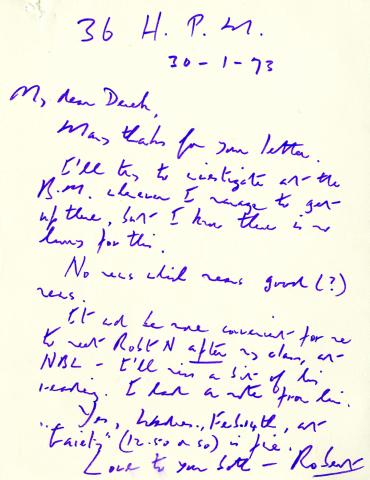 36 H. P. M.
30-1-73
My dear Derek,
Many thanks for your letter.
I'll try to investigate at the
B.M. whenever I manage to get
up there, but I know there is no
hurry for this.
No news which means good (?)
news.
It wd be more convenient for me
to meet Robt N after my class, at
NBL - I'll miss a bit of his
reading. I had a note from him.
Yes, Wednes., Feb 14th, at
"Gaiety" (12.50 or so) is fine.
Love to you both - Robert